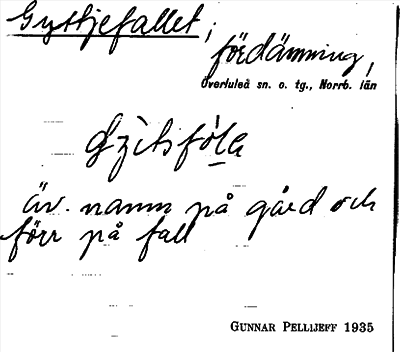 Gyttjefallet;
fördämning,
Överluleå sn. o. tg., Norrb. län
äv. namn på gård och
förr på fall
GUNNAR PELLIJEFF 1935